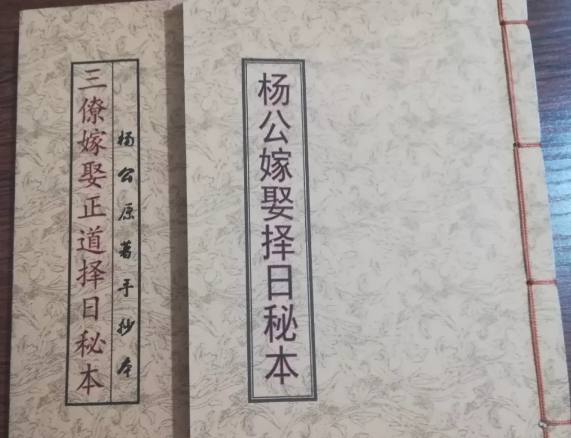 杨公嫁娶择日秘本
杨公原著手抄本
三僚嫁娶正道择日秘本